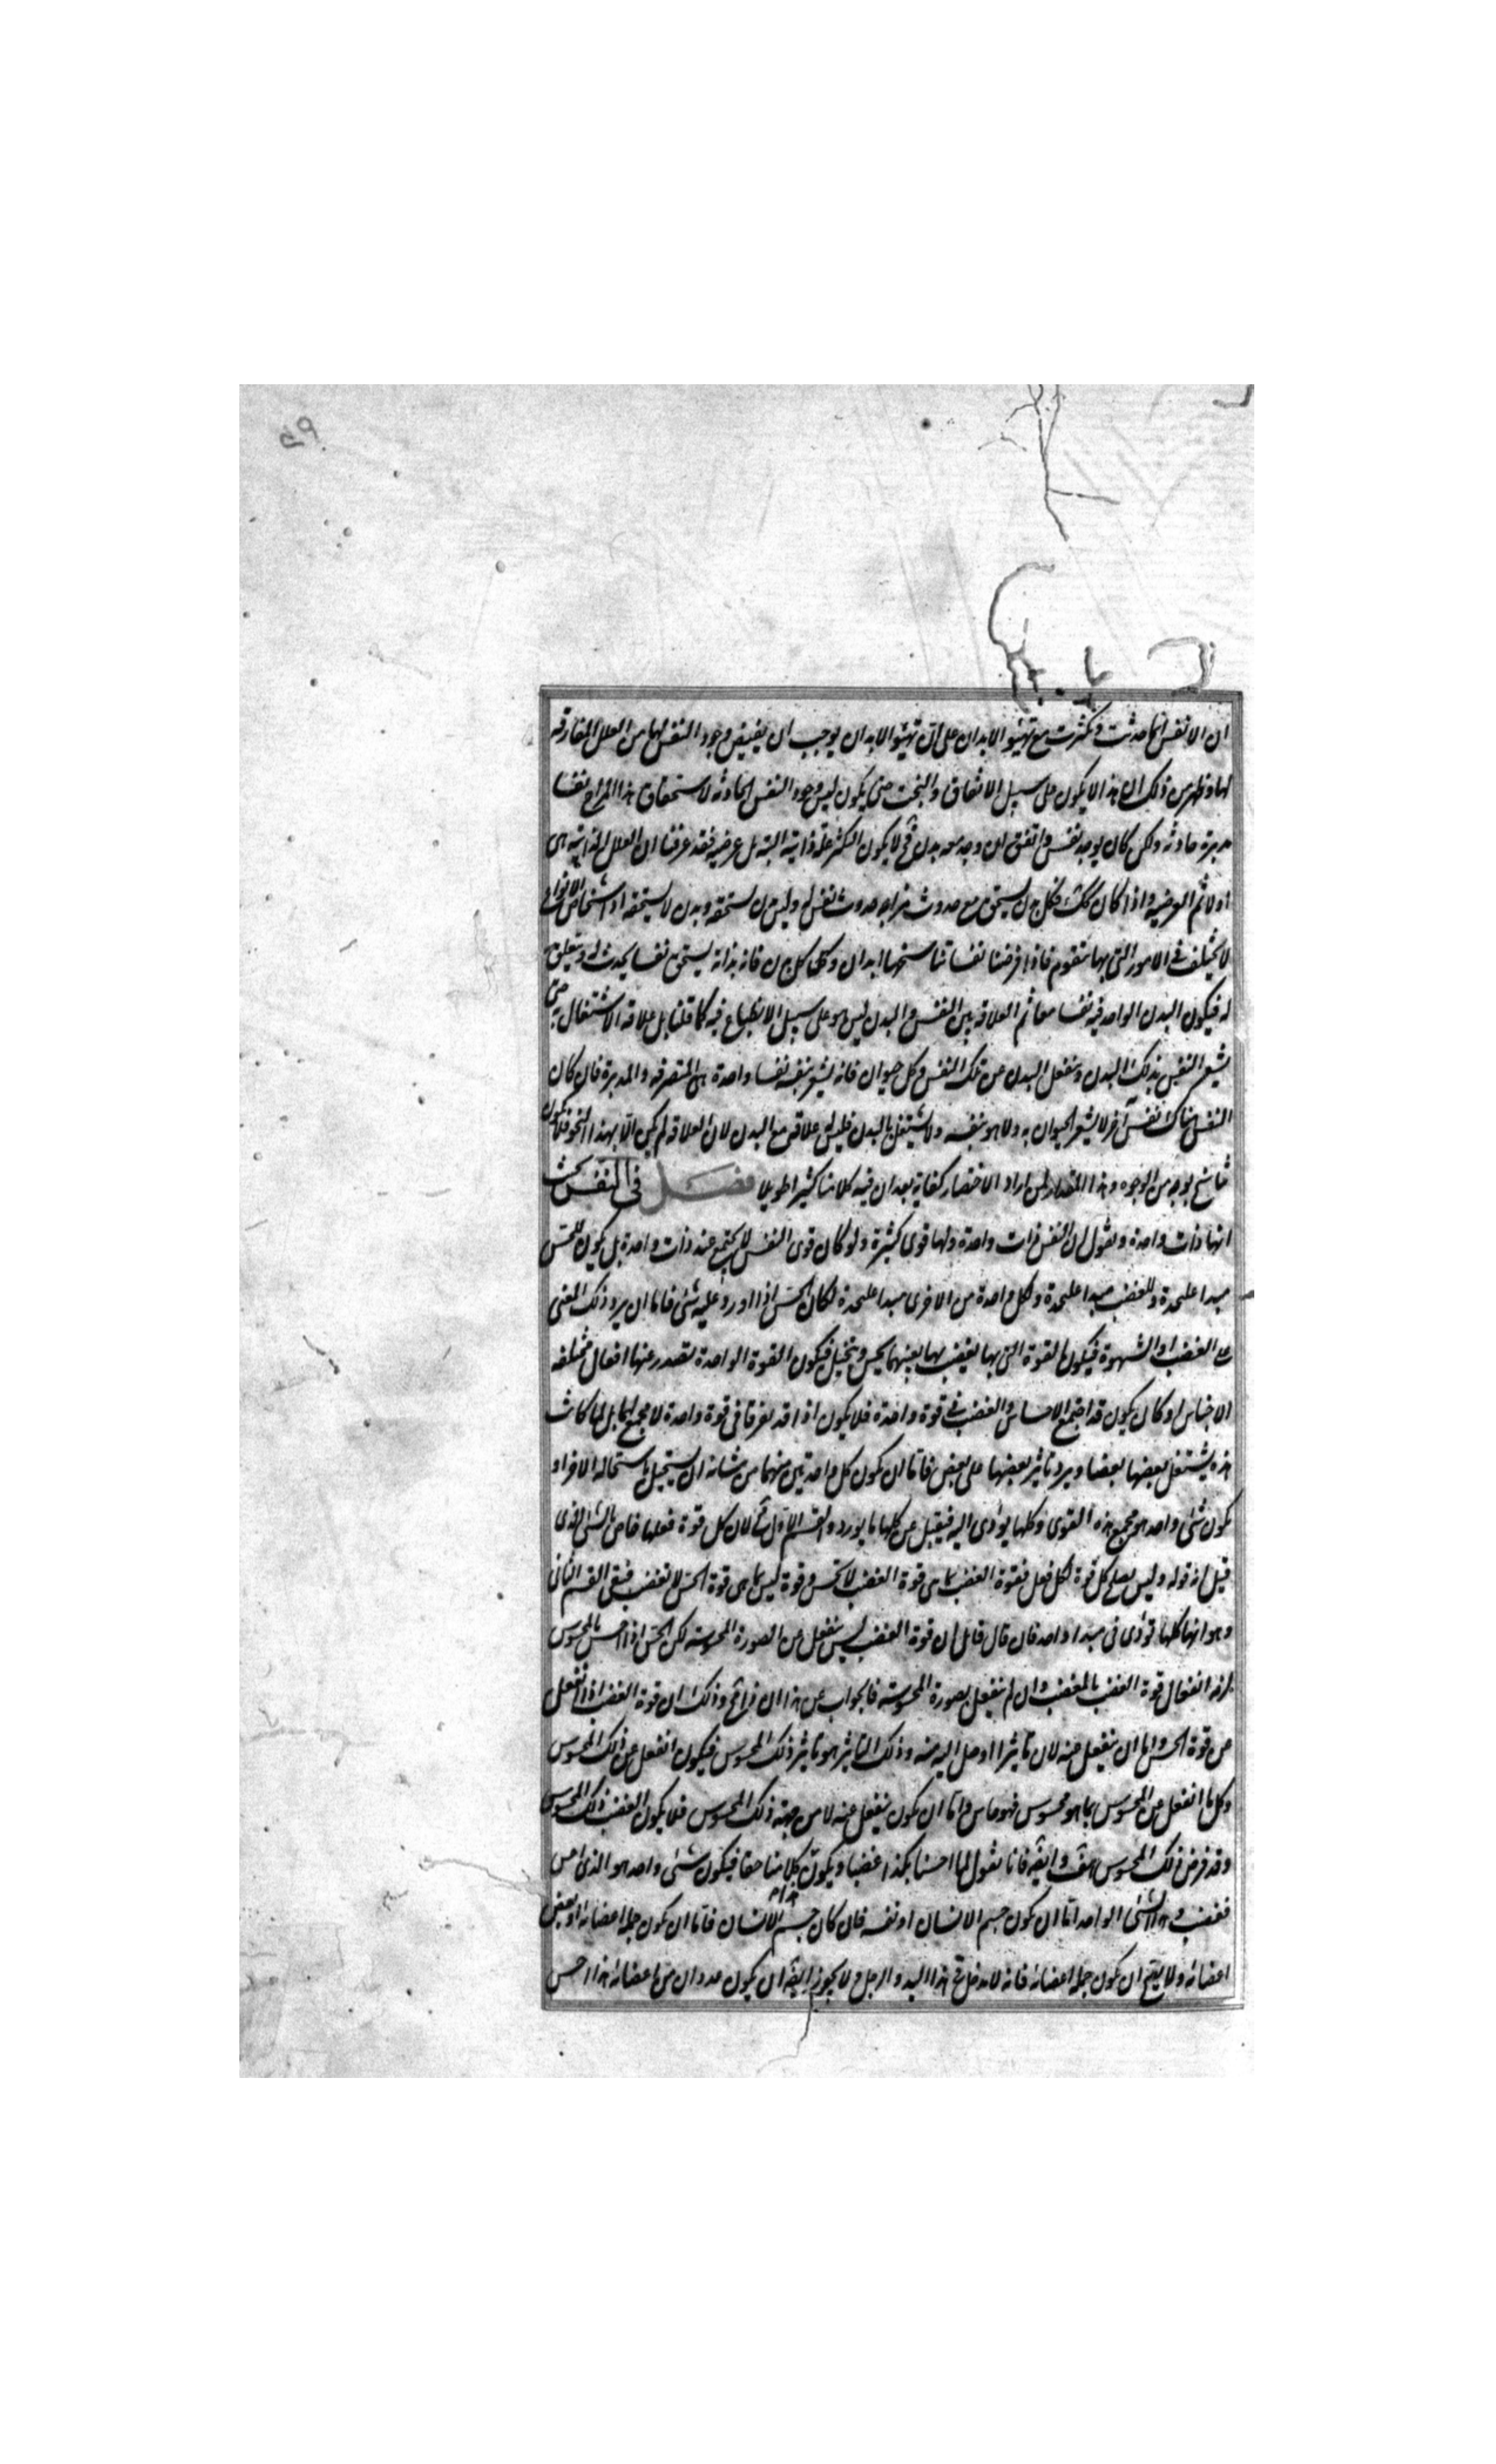 ان الانفس انما حدثت وتكثرت مع تهيئو الابدان على ان تهيئو الابدان يوجب ان يفيض وجود النفس لها من العلل المفارقه
لها وظهر من ذلك ان هذا لا يكون على سبيل الاتفاق والبخت حتى يكون ليس وجود النفس الحادثه لاستحقاق هذا المزاج نفسا
مدبرة حادثه ولكن كان يوجد نفس واتفق ان وجد معه بدن فح لا يكون للتكثر علة ذاتيه البته بل عرضيه فقد عرفنا ان العلل الذاتيه هى
اولا ثم العرضيه واذا كان كك فكل بدن يستحق مع حدوث مزاجه حدوث نفس له وليس بدن يستحقه وبدن لا يستحقه اذ اشخاص الانواع
لا يختلف فى الامور التى بها يتقوم فاذا فرضنا نفسا تناسختها ابدان وكل بدن فانه بذاته يستحق نفسا يحدث له ويتعلق به
له فيكون البدن الواحد فيه نفسا معا ثم العلاقه بين النفس والبدن ليس هو على سبيل الانطباع فيه كما قلنا بل علاقه الاشتغال به حتى
يشعر النفس بذلك البدن وينفعل البدن عن تلك النفس وكل حيوان فانه يشعر بنفسه نفسا واحدة هى المتصرفه والمدبرة فان كان
النفس هناك نفس آخر لا يشعر الحيوان به ولا هو بنفسه ولا يشتغل بالبدن فليس له علاقة مع البدن لان العلاقه لم يكن الا بهذا النحو فلا يكون
تناسخ بوجه من الوجوه وهذا المقدار لمن اراد الاختصار كفاية بعد ان فيه كلاما كثيرا طويلا فصل فى النفس بحث
انها ذات واحدة ونقول ان النفس ذات واحدة ولها قوى كثيرة ولو كان قوى النفس لا يجتمع عند ذات واحدة بل يكون للحس
مبدا عليحدة وللغضب مبدا عليحدة ولكل واحدة من الاخرى مبدا عليحدة لكان الحس اذا اورد عليه شئ فاما ان يرد ذلك المعنى
على الغضب او الشهوة فيكون القوة التى بها يغضب بها بعينها يحس ويتخيل فيكون القوة الواحدة تصدر عنها افعال مختلفه
الاجناس او كان يكون قد اجتمع الاحساس والغضب فى قوة واحدة فلا يكون اذا قد تفرقا فى قوة واحدة لا مجمع لها بل لما كانت
هذه يشتغل بعضها بعضا ويرد تاثير بعضها على بعض فاما ان يكون كل واحدة منهما من شانه ان يستحيل باستحاله الاخر او
يكون شئ واحد هو مجمع هذه القوى وكلها يؤدى اليه فيقبل عن كلها ما يورد والقسم الاول مح لان كل قوة فعلها خاص بالشئ الذى
قيل انه قوله وليس يصلح كل قوة لكل فعل فقوة الغضب بما هى قوة الغضب لا تحس وقوة الحس بما هى قوة الحس لا تغضب فبقى القسم الثانى
وهو انها كلها تؤدى فى مبدا واحد فان قال قايل ان قوة الغضب ليس ينفعل عن الصورة المحسوسه لكن الحس اذا احس بالمحسوس
لزمه انفعال قوة الغضب بالمغضب وان لم ينفعل بصورة المحسوسه فالجواب عن هذا ان هذا مح وذلك ان قوة الغضب اذا انفعل
عن قوة الحس واما ان ينفعل عنه لان تاثيرا وصل اليه منه وذلك التاثير هو تاثير ذلك المحسوس فيكون انفعل عن ذلك المحسوس
وكل ما انفعل عن المحسوس بما هو محسوس فهو حاس واما ان يكون ينفعل عنه لا من جهة ذلك المحسوس فلا يكون الغضب ذلك المحسوس
وقد فرض ذلك المحسوس هف وايضه فانا نقول لما احسنا بكذا غضبنا ويكون كلامنا حقا فيكون شئ واحد هو الذى احس
فغضب وهذا الشئ الواحد اما ان يكون جسم الانسان او نفسه فان كان جسم الانسان فاما ان يكون جملة اعضائه او بعض
اعضائه ولا يصح ان يكون جملة اعضائه فانه لا مدخل فى هذا اليد والرجل ولا يجوز ايضه ان يكون عددان من اعضائه هذا احس